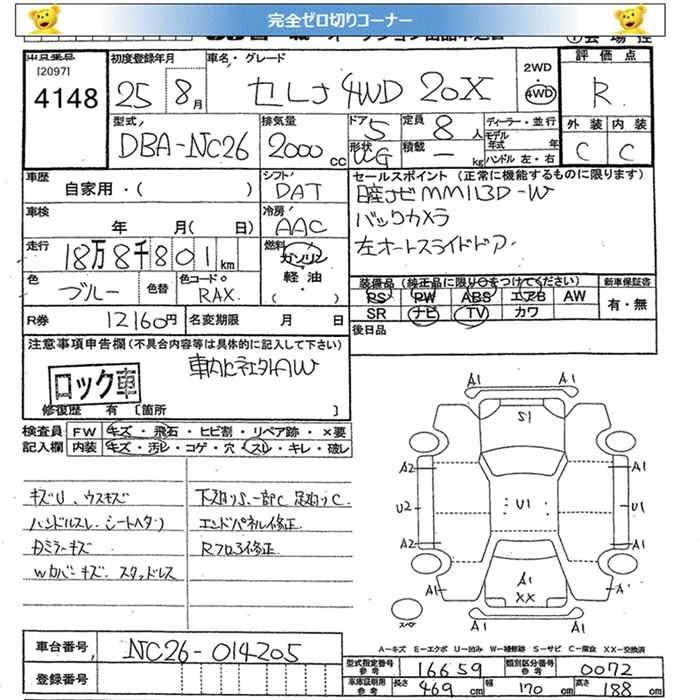 完全ゼロ切りコーナー
初度登録年月 車名・グレード 2WD 4WD 評価点
[2097]
4148 25 8月 セレナ 4WD 20X R
型式 排気量 ドア 5 定員 8人 ディーラー・並行 外装 内装
DBA-NC26 2000cc 形状 積載 ー kg モデル年式 年 ハンドル 左・右 C C
車歴 シフト セールスポイント (正常に機能するものに限ります)
自家用・( ) DAT
MM113D-W
車検 年 月( 日) 冷房 AAC バックカメラ
走行 18万8千801km 燃料 ガソリン・軽油 ( ) 左オートスライドドア
色 ブルー 色替 色コード RAX
装備品 (純正品に限り○をつけてください) 新車保証書
PS PW ABS エアB AW 有・無
SR ナビ TV カワ
R券 12160円 名変期限 月 日 後日品
注意事項申告欄(不具合内容等は具体的に記入して下さい)
ロック車
修復歴 有 [箇所 ]
検査員 FW キズ・飛石・ヒビ割・リペア跡・×要
記入欄 内装 キズ・汚レ・コゲ・穴・スレ・キレ・破レ
キズU、ウスキズ
ハンドルスレ、シートヘタリ
Dミラーキズ
Wカバーキズ、スタッドレス
下廻りS、一部C 足廻りC
エンドパネル修正
Rフロア修正
A1 A1
S1
A2 A1
U2 U1 U1
A2 A1
A1 A1 A'
XX
スペア
A1 A1
A−キズ E−エクボ U−凹み W−補修跡 S−サビ C−腐食 XX−交換済
車台番号 NC26-014205
型式指定番号 参考 16659 類別区分番号 参考 0072
登録番号
車庫証明用 参考 長さ 469cm 幅 170cm 高さ 188cm